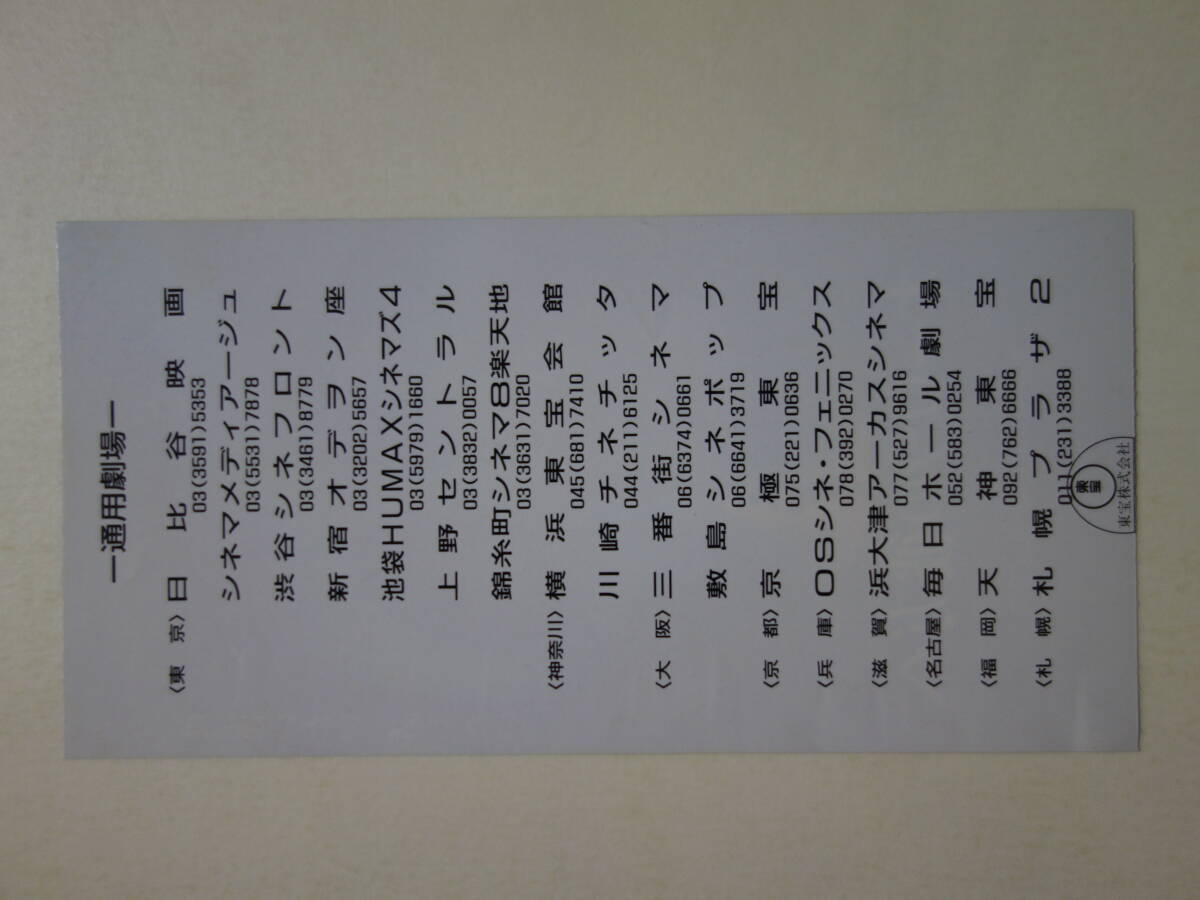 ー通用劇場ー
〈東 京〉日 比 谷 映 画
03(3591)5353
シネマメディアージュ
03(5531)7878
渋谷シネフロント
03(3461)8779
新 宿 オ デ ヲ ン 座
03(3202)5657
池袋HUMAXシネマズ4
03(5979)1660
上 野 セ ン ト ラ ル
03(3832)0057
錦糸町シネマ8楽天地
03(3631)7020
〈神奈川〉横 浜 東 宝 会 館
045(681)7410
川 崎 チ ネ チ ッ タ
044(211)6125
〈大 阪〉三 番 街 シ ネ マ
06(6374)0661
敷 島 シ ネ ポ ッ プ
06(6641)3719
〈京 都〉京 極 東 宝
075(221)0636
〈兵 庫〉OSシネ・フェニックス
078(392)0270
〈滋 賀〉浜大津アーカスシネマ
077(527)9616
〈名古屋〉毎 日 ホ ー ル 劇 場
052(583)0254
〈福 岡〉天 神 東 宝
092(762)6666
〈札 幌〉札 幌 プ ラ ザ 2
011(231)3388
東宝
東宝株式会社